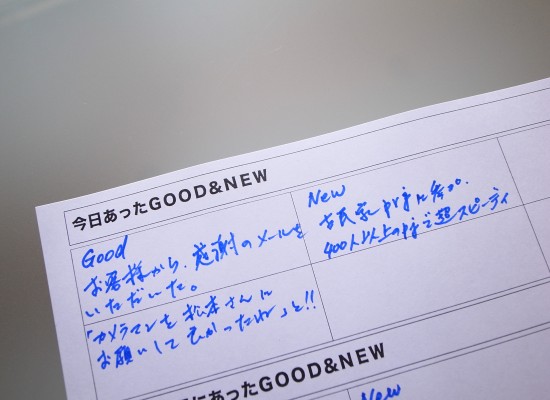 今日あったGOOD&NEW
Good
お客様から、感謝のメールを
いただいた。
「カメラマンを松本さんに
お願いしてよかったね」と!!
New
古民家prjに参加。
400人以上の中で超スピーディ
にあったGOOD&NEW
New